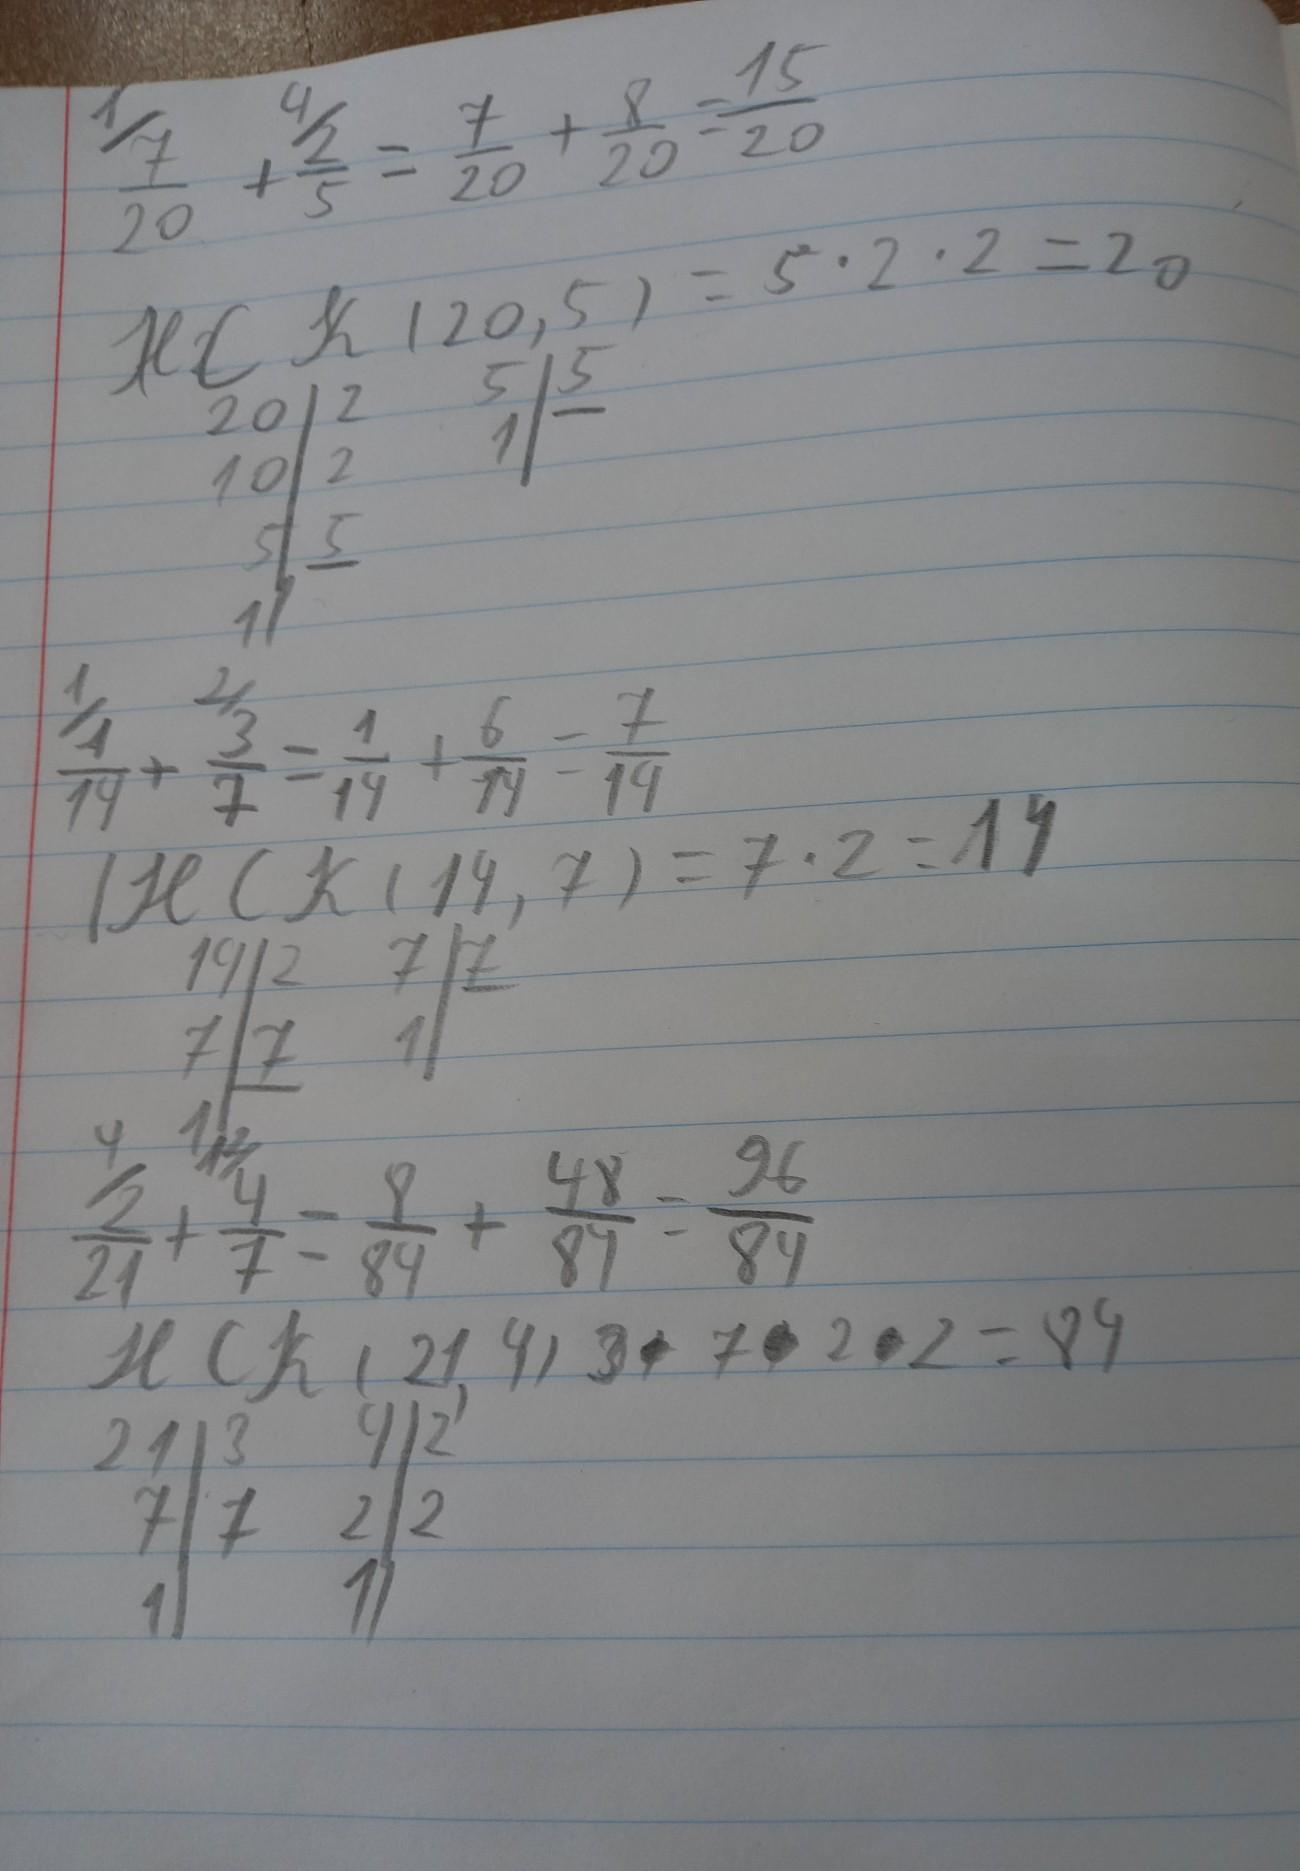 1/ 4/
7/20 + 2/5 = 7/20 + 8/20 = 15/20
НСК (20,5) = 5·2·2=20
20|2 5|5
10|2 1|
5|5
1|
1/ 2/
1/14 + 3/7 = 1/14 + 6/14 = 7/14
НСК (14,7) = 7·2=14
14|2 7|7
7|7 1|
1|
4/ 12/
2/21 + 4/7 = 8/84 + 48/84 = 96/84
НСК (21,4) 3·7·2·2=84
21|3 4|2
7|7 2|2
1| 1|